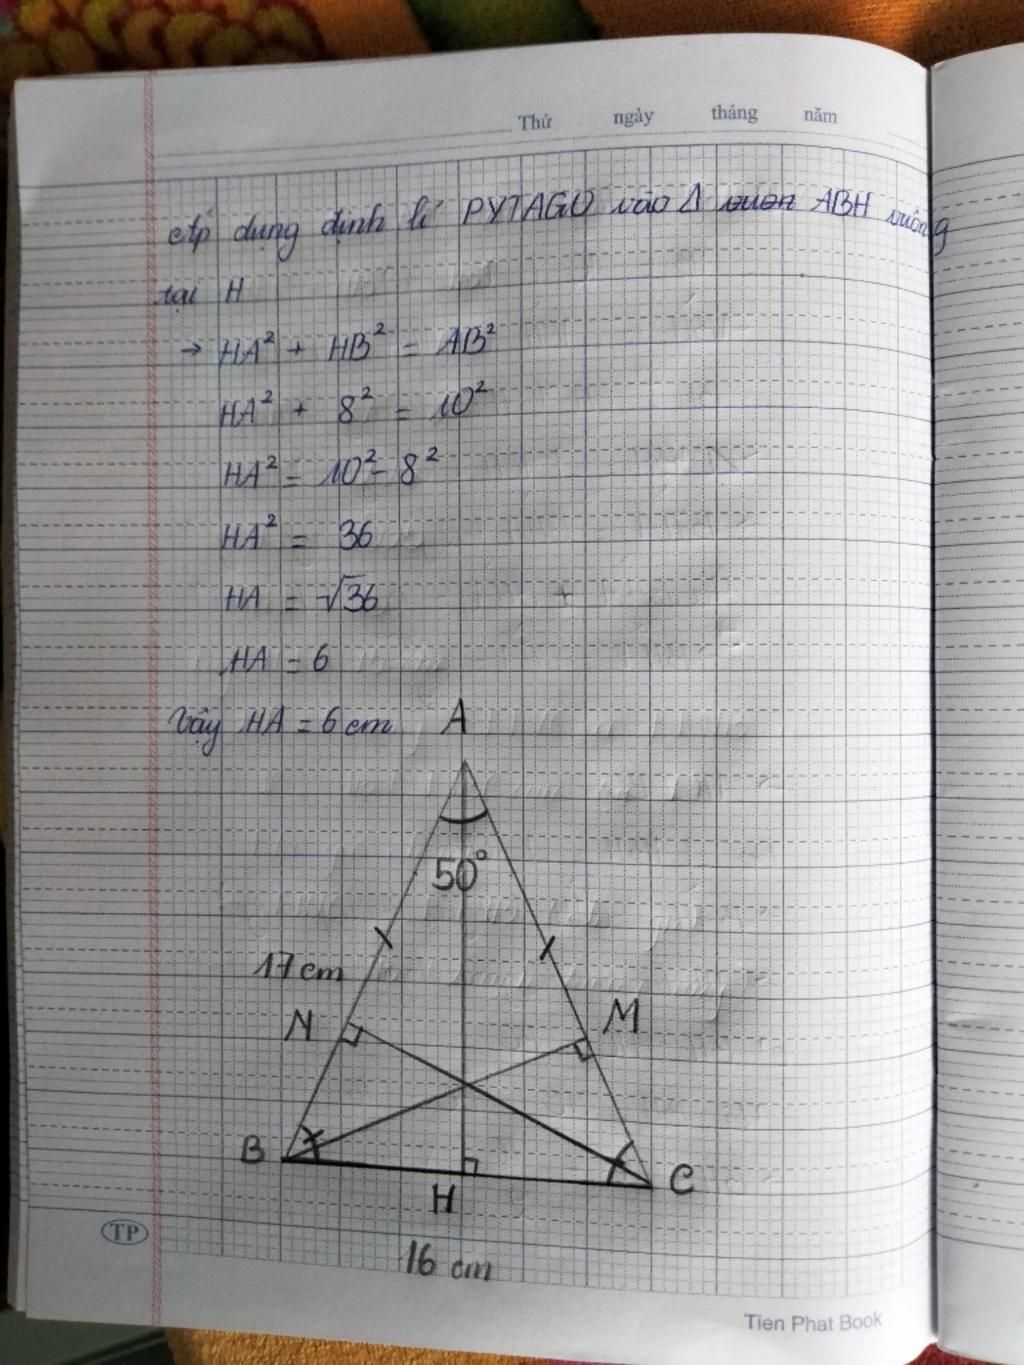 Thứ ngày tháng năm
Áp dụng định lí PYTAGO vào Δ vuôn ABH vuông
tại H
→ HA² + HB² = AB²
HA² + 8² = 10²
HA² = 10² - 8²
HA² = 36
HA = √36
HA = 6
Vậy HA = 6 cm
A
50°
17 cm
N
M
B
H
C
16 cm
TP
Tien Phat Book